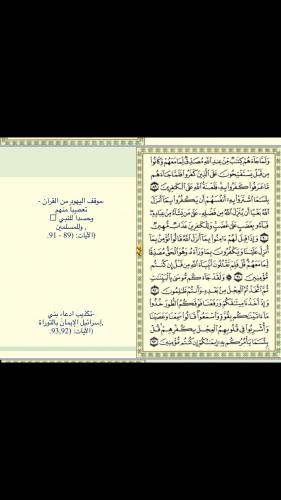 وَلَمَّا جَآءَهُمْ كِتَٰبٌ مِّنْ عِندِ ٱللَّهِ مُصَدِّقٌ لِّمَا مَعَهُمْ وَكَانُوا۟
مِن قَبْلُ يَسْتَفْتِحُونَ عَلَى ٱلَّذِينَ كَفَرُوا۟ فَلَمَّا جَآءَهُم
مَّا عَرَفُوا۟ كَفَرُوا۟ بِهِۦ فَلَعْنَةُ ٱللَّهِ عَلَى ٱلْكَٰفِرِينَ ٨٩
بِئْسَمَا ٱشْتَرَوْا۟ بِهِۦٓ أَنفُسَهُمْ أَن يَكْفُرُوا۟ بِمَآ أَنزَلَ
ٱللَّهُ بَغْيًا أَن يُنَزِّلَ ٱللَّهُ مِن فَضْلِهِۦ عَلَىٰ مَن يَشَآءُ مِنْ عِبَادِهِۦ
فَبَآءُو بِغَضَبٍ عَلَىٰ غَضَبٍ وَلِلْكَٰفِرِينَ عَذَابٌ مُّهِينٌ
٩٠ وَإِذَا قِيلَ لَهُمْ ءَامِنُوا۟ بِمَآ أَنزَلَ ٱللَّهُ قَالُوا۟ نُؤْمِنُ بِمَآ
أُنزِلَ عَلَيْنَا وَيَكْفُرُونَ بِمَا وَرَآءَهُۥ وَهُوَ ٱلْحَقُّ مُصَدِّقًا
لِّمَا مَعَهُمْ قُلْ فَلِمَ تَقْتُلُونَ أَنۢبِيَآءَ ٱللَّهِ مِن قَبْلُ إِن كُنتُم
مُّؤْمِنِينَ ٩١ وَلَقَدْ جَآءَكُم مُّوسَىٰ بِٱلْبَيِّنَٰتِ
ثُمَّ ٱتَّخَذْتُمُ ٱلْعِجْلَ مِنۢ بَعْدِهِۦ وَأَنتُمْ ظَٰلِمُونَ ٩٢
وَإِذْ أَخَذْنَا مِيثَٰقَكُمْ وَرَفَعْنَا فَوْقَكُمُ ٱلطُّورَ خُذُوا۟
مَآ ءَاتَيْنَٰكُم بِقُوَّةٍ وَٱسْمَعُوا۟ قَالُوا۟ سَمِعْنَا وَعَصَيْنَا
وَأُشْرِبُوا۟ فِى قُلُوبِهِمُ ٱلْعِجْلَ بِكُفْرِهِمْ قُلْ
بِئْسَمَا يَأْمُرُكُم بِهِۦٓ إِيمَٰنُكُمْ إِن كُنتُم مُّؤْمِنِينَ ٩٣
-موقف اليهود من القرآن
تعصباً منهم
وحسداً للنبي
وللمسلمين.
(الآيات: (89 - 91.
-تكذيب ادعاء بني
إسرائيل الإيمان بالتوراة.
(الآيات: (93,92.